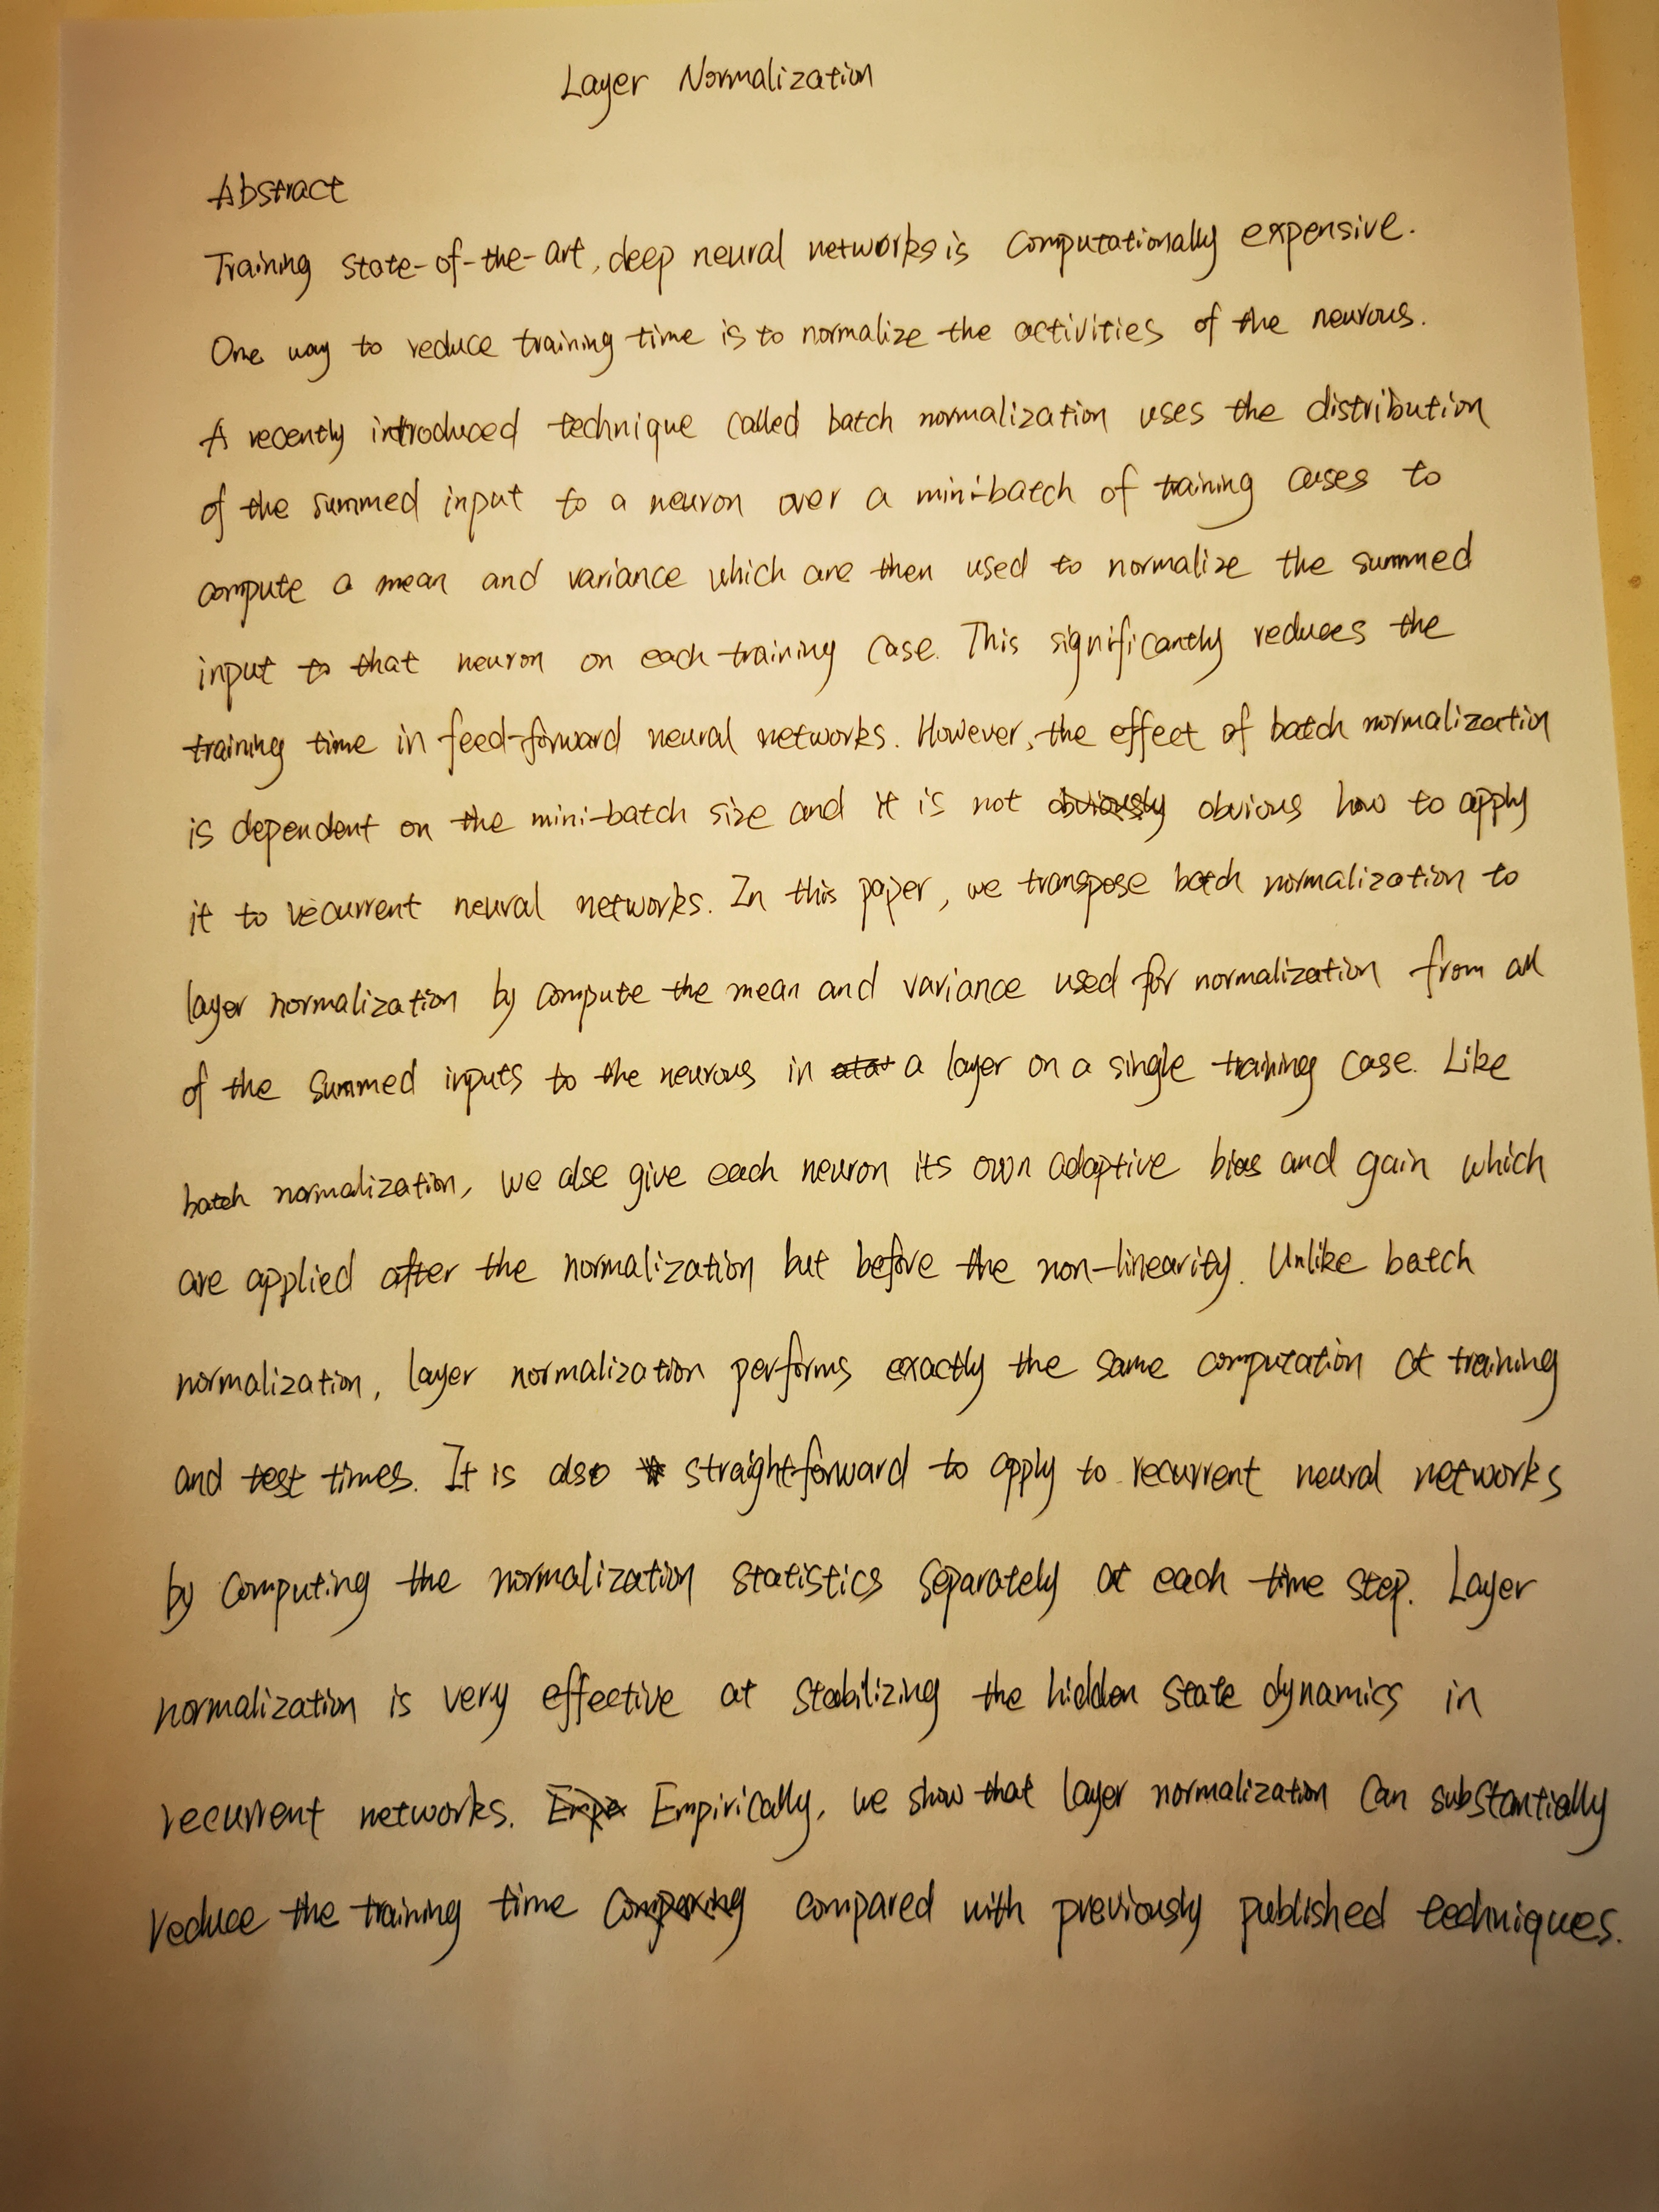 Layer Normalization
Abstract
Training state-of-the-art, deep neural networks is computationally expensive.
One way to reduce training time is to normalize the activities of the neurous.
A recently introduced technique called batch normalization uses the distribution
of the summed input to a neuron over a mini-batch of training cases to
compute a mean and variance which are then used to normalize the summed
input to that neuron on each training case. This significantly reduces the
training time in feed-forward neural networks. However, the effect of batch normalization
is dependent on the mini-batch size and it is not obvious how to apply
it to recurrent neural networks. In this paper, we transpose batch normalization to
layer normalization by compute the mean and variance used for normalization from all
of the summed inputs to the neurous in a layer on a single training case. Like
batch normalization, we alse give each neuron its own adaptive bias and gain which
are applied after the normalization but before the non-linearity. Unlike batch
normalization, layer normalization performs exactly the same computation at training
and test times. It is also straightforward to apply to recurrent neural networks
by computing the normalization statistics separately at each time step. Layer
normalization is very effective at stabilizing the hidden state dynamics in
recurrent networks. Empirically, we show that layer normalization can substantially
reduce the training time compared with previously published techniques.